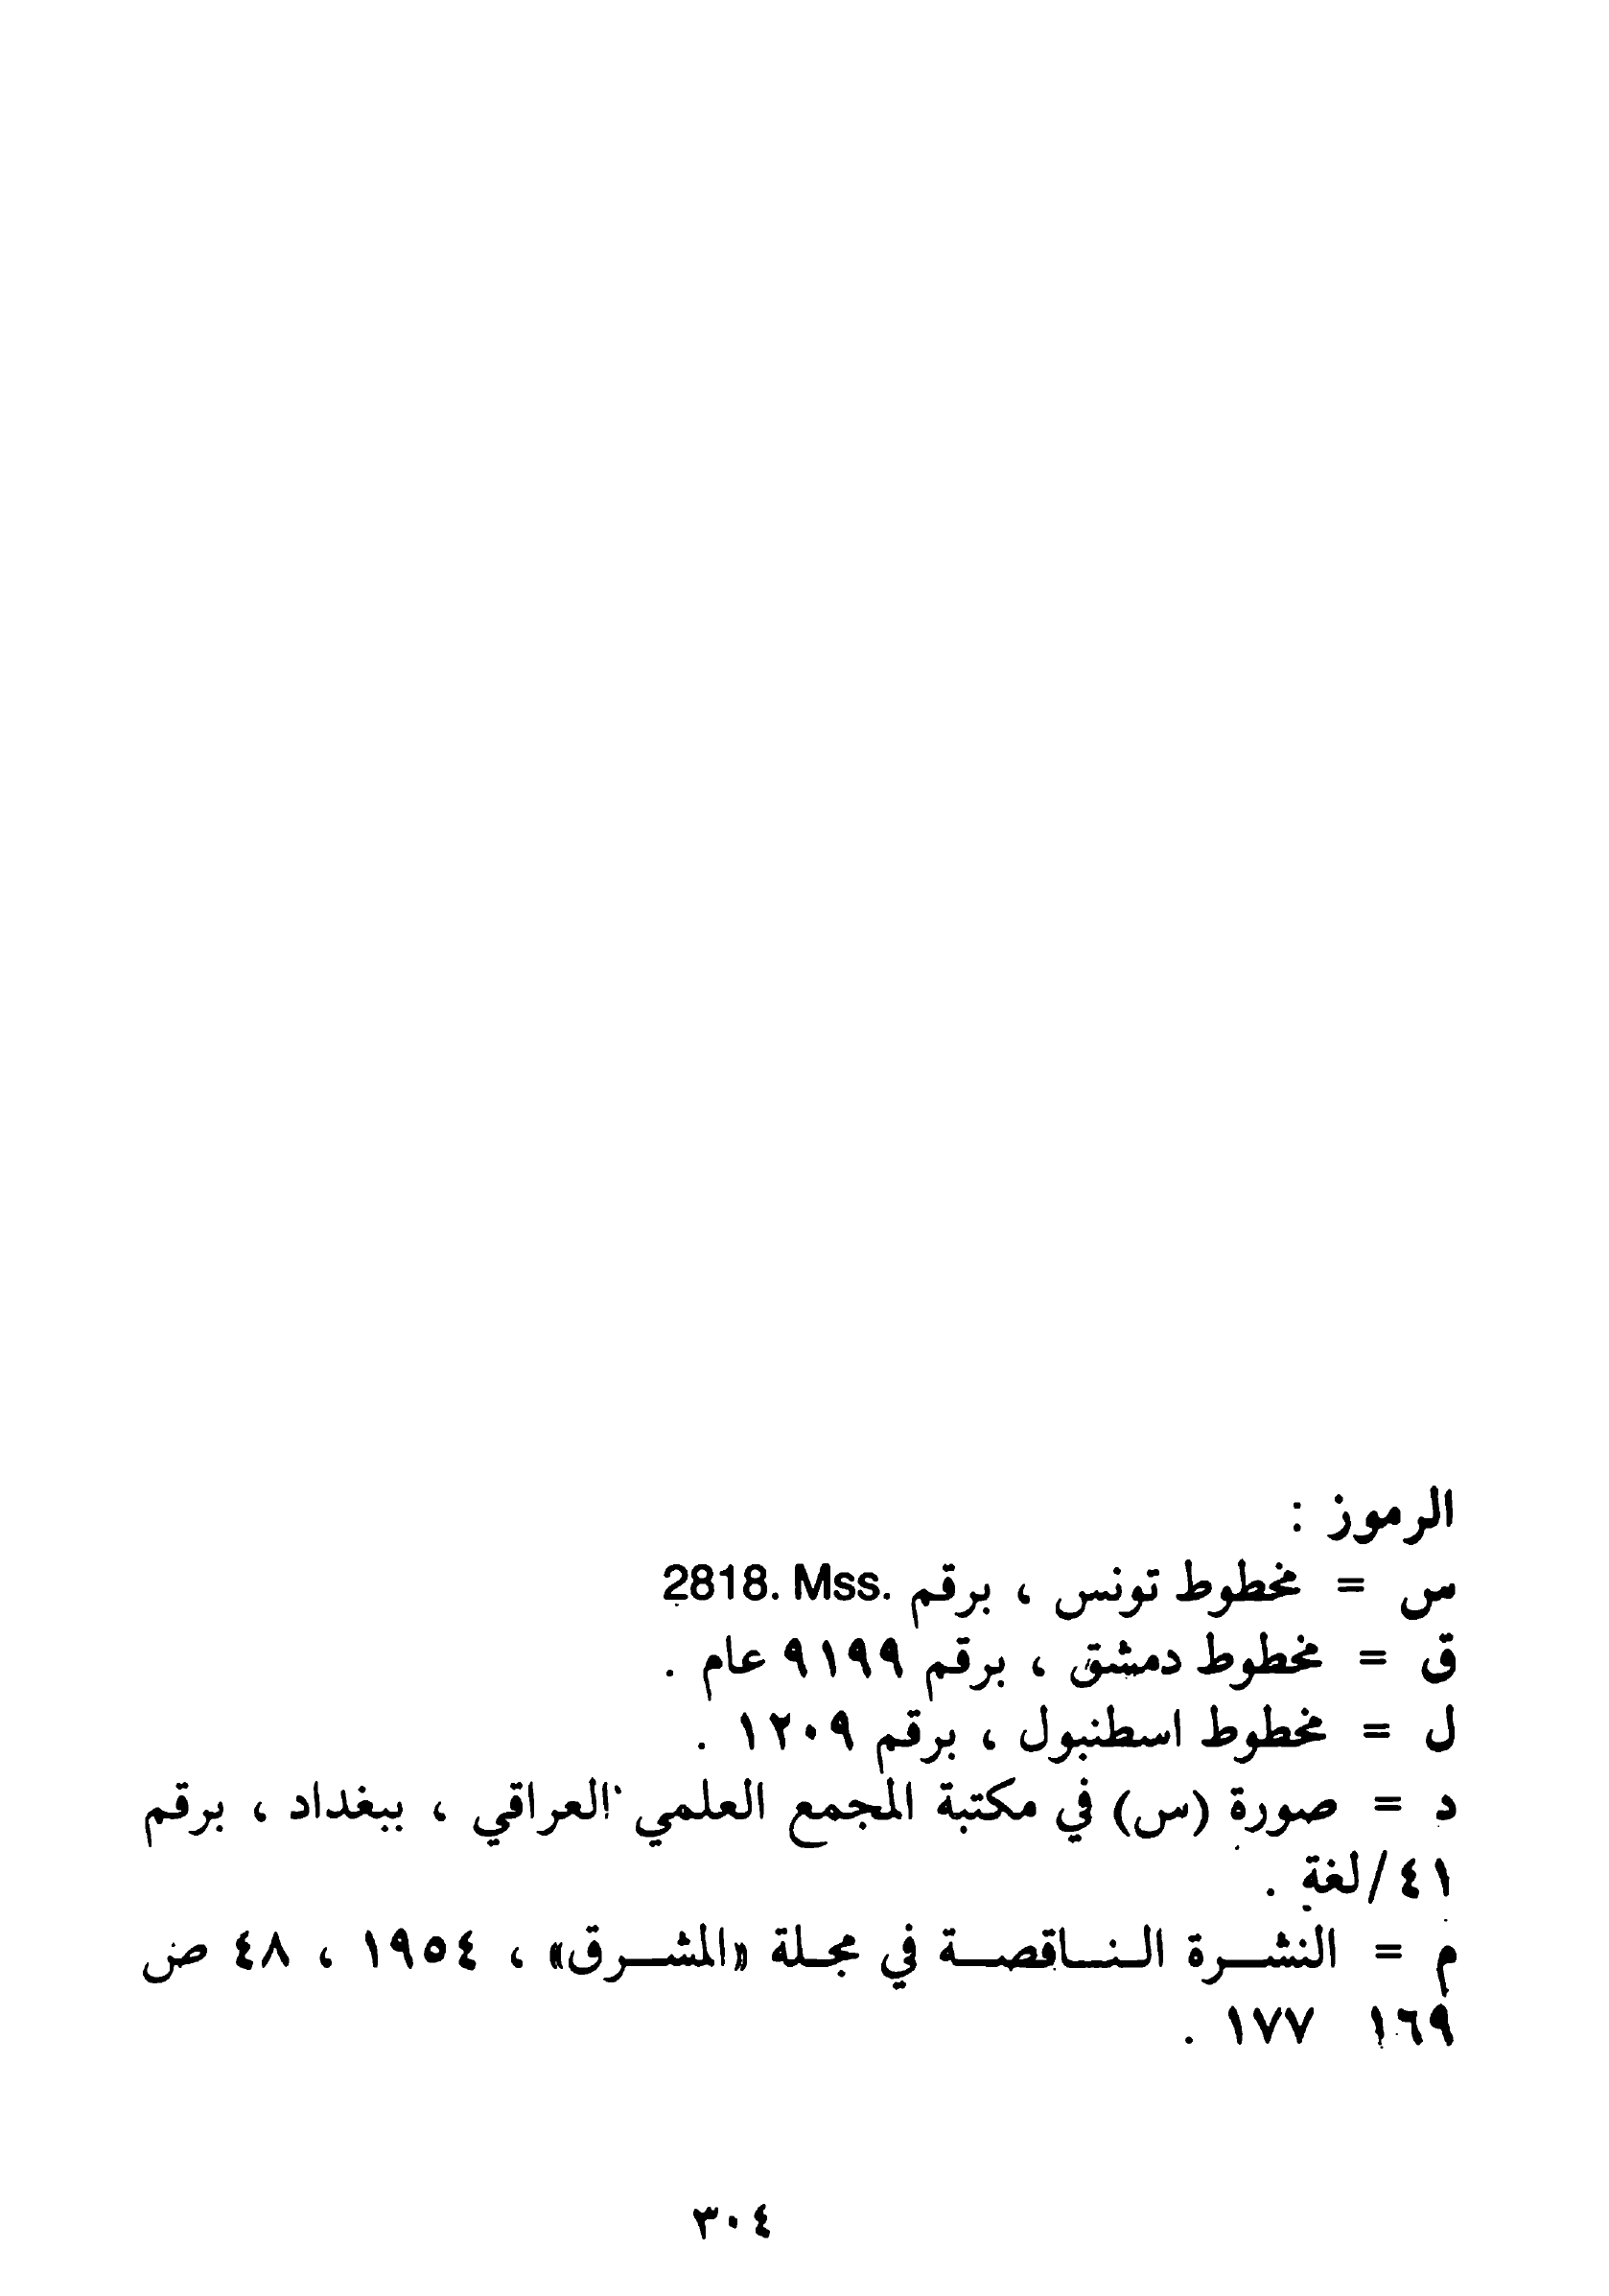 الرموز :
س = مخطوط تونس ، برقم 2818. Mss.
ق = مخطوط دمشق ، برقم ٩١٩٩ عام .
ل = مخطوط اسطنبول ، برقم ١٢٠٩ .
د = صورة (س) في مكتبة المجمع العلمي العراقي ، ببغداد ، برقم
٤١/لغة .
م = النشرة الناقصة في مجلة «المشرق» ، ١٩٥٤ ، ٤٨ ص
١٦٩ ١٧٧ .
٣٠٤